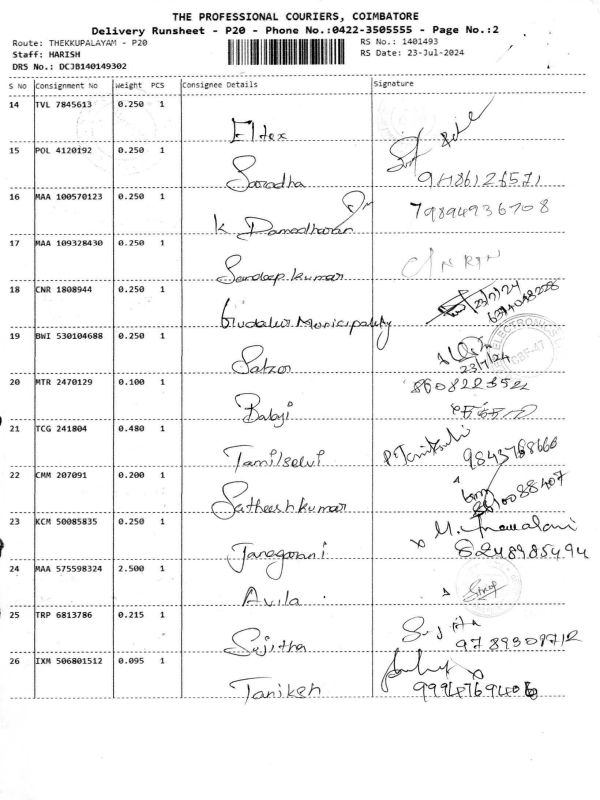 THE PROFESSIONAL COURIERS, COIMBATORE
Delivery Runsheet - P20 - Phone No.:0422-3505555 - Page No.:2
Route: THEKKUPALAYAM - P20 RS No.: 1401493
Staff: HARISH RS Date: 23-Jul-2024
DRS No.: DCJB140149302
S No Consignment No Weight PCS Consignee Details Signature
14 TVL 7845613 0.250 1
Eltex
15 POL 4120192 0.250 1
Saradha
16 MAA 100570123 0.250 1
K Damodharan 79894936708
17 MAA 109328430 0.250 1
Sandeep kumar
18 CNR 1808944 0.250 1
Gudalur Municipality 23/7/24
19 BWI 530104688 0.250 1
Satzor 23/7/24
20 MTR 2470129 0.100 1
Babji
21 TCG 241804 0.480 1
Tamilselvi 9843768666
22 CMM 207091 0.200 1
Satheeshkumar
23 KCM 50085835 0.250 1
8248985494
24 MAA 575598324 2.500 1
Avila
25 TRP 6813786 0.215 1
Sujitha Sujitha
26 IXM 506801512 0.095 1
Taniksh